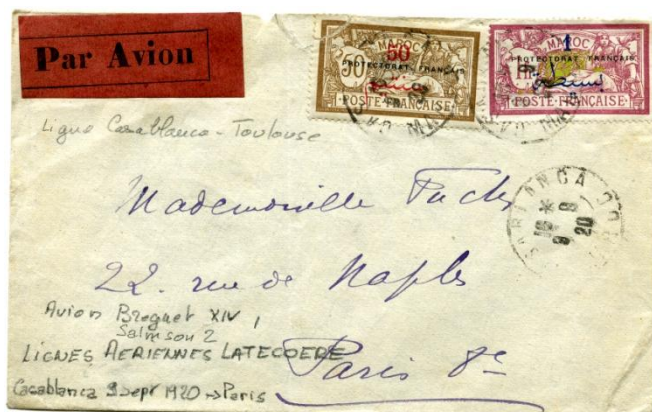 Par Avion
MAROC
50
PROTECTORAT FRANÇAIS
50
POSTE FRANÇAISE
MAROC
1
PROTECTORAT FRANÇAIS
1 FR
POSTE FRANÇAISE
Ligne Casablanca - Toulouse
Mademoiselle
22. rue de Naples
Paris 8e
CASABLANCA
9
20
Avion Breguet XIV,
Salmson 2
LIGNES AERIENNES LATECOERE
Casablanca 9 sept 1920 → Paris